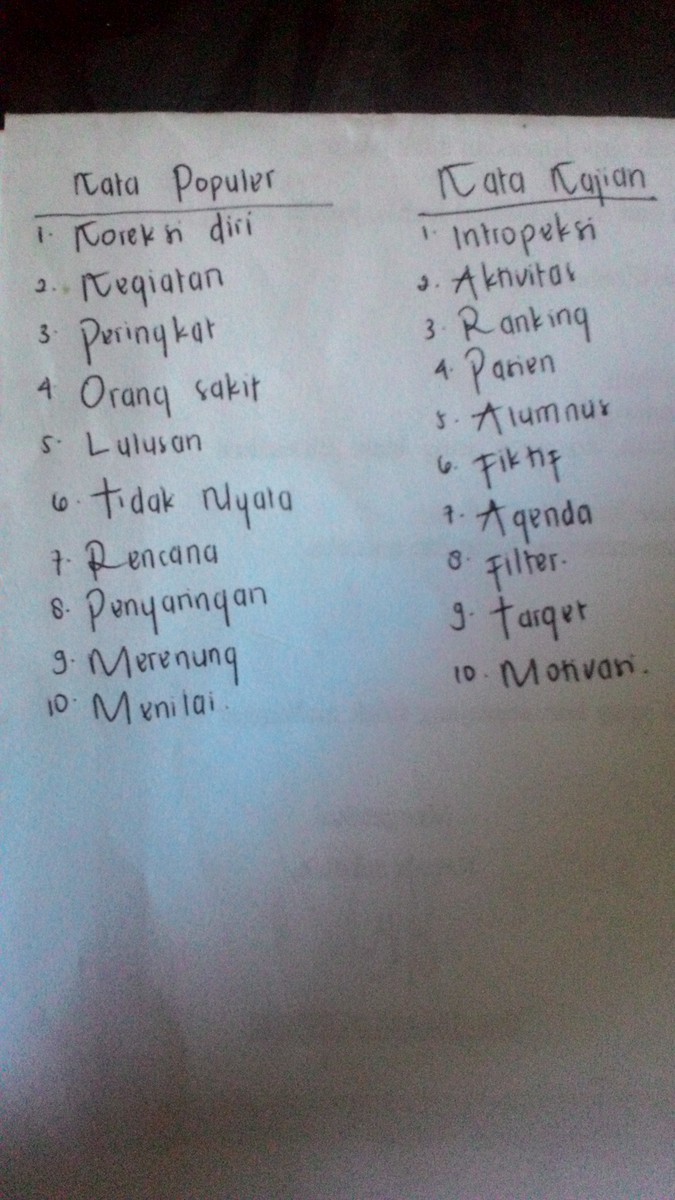 Kata Populer
1. Koreksi diri
2. Kegiatan
3. Peringkat
4 Orang sakit
5. Lulusan
6. Tidak Nyata
7. Rencana
8. Penyaringan
9. Merenung
10. Menilai.
Kata Kajian
1. Intropeksi
2. Aktivitas
3. Ranking
4. Pasien
5. Alumnus
6. Fiktif
7. Agenda
8. Filter.
9. Target
10. Motivasi.